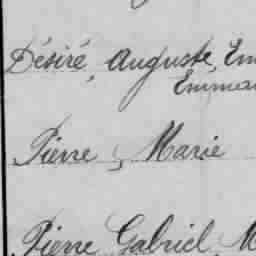 Désiré, Auguste, Em
Emman
Pierre, Marie
Pierre Gabriel, M